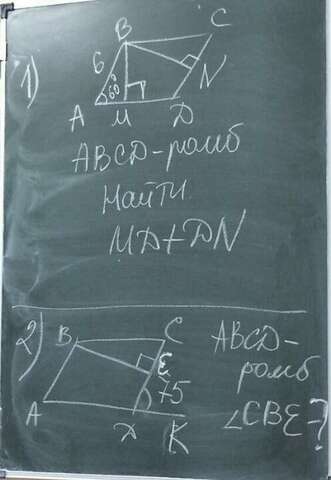 1)
B
C
6
60
N
A
M
D
ABCD-ромб
Найти
MD+DN
2)
B
C
ABCD-
ромб
E
75
∠CBE-?
A
D
K